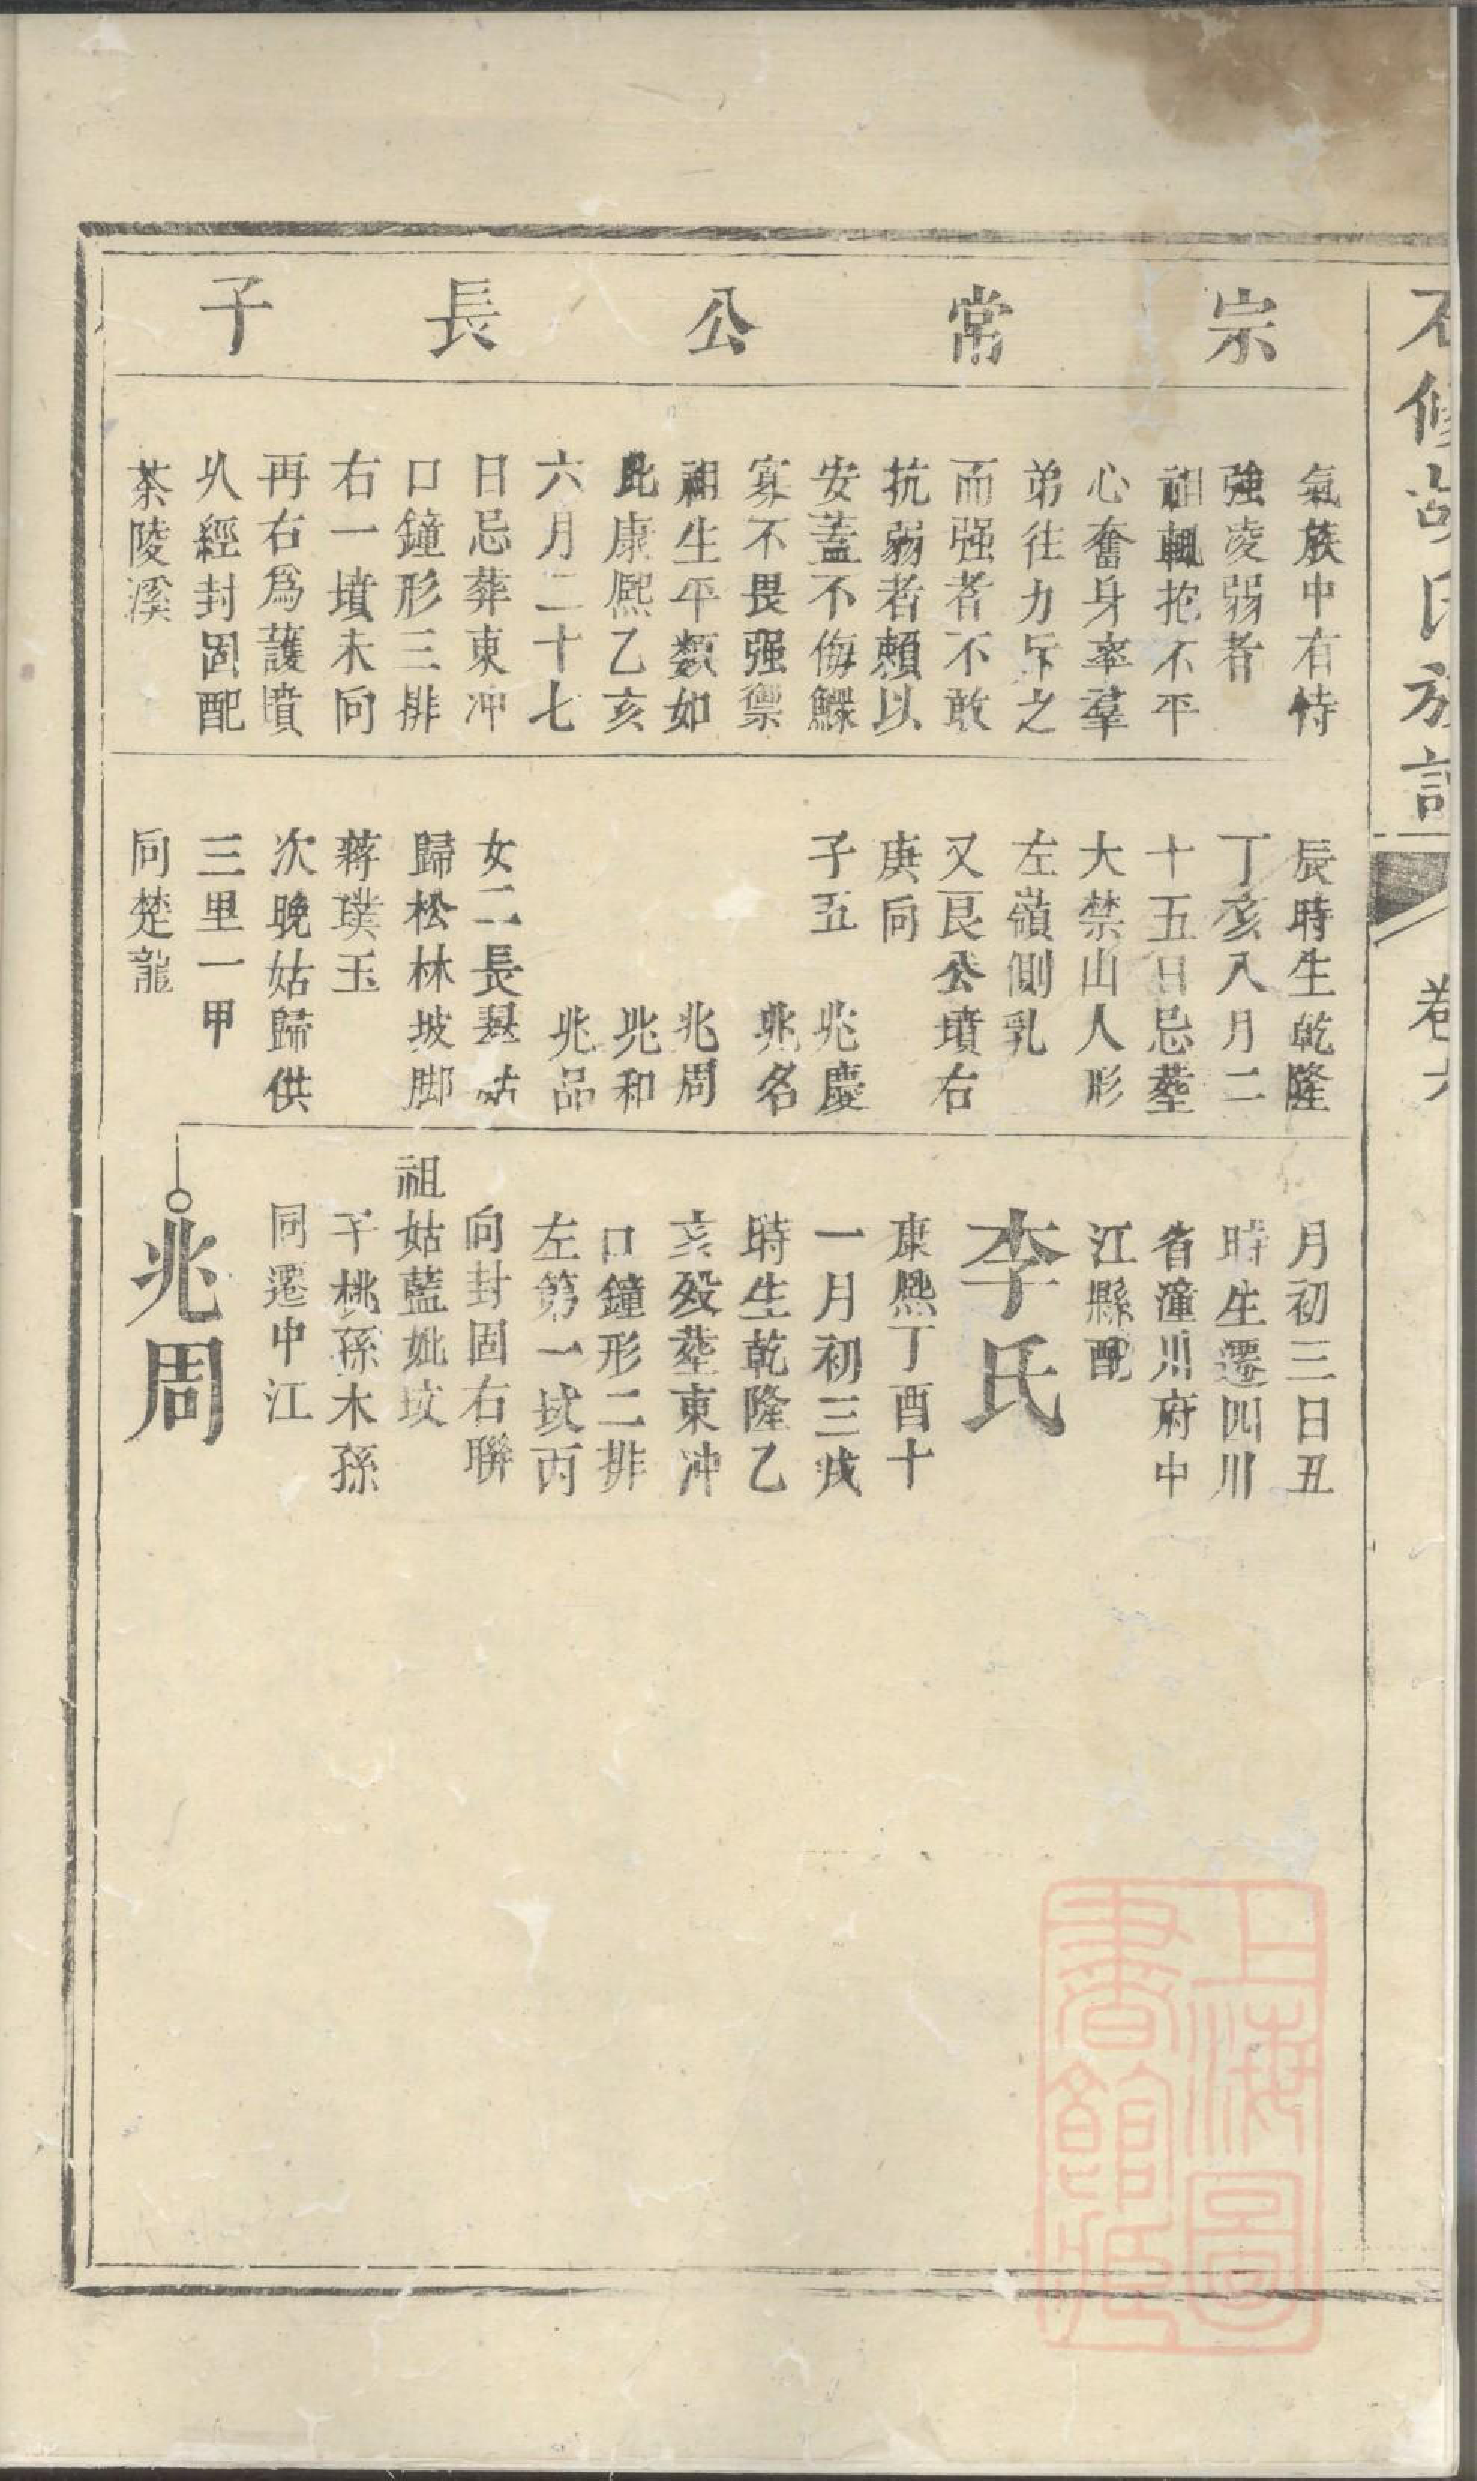 修胡氏族譜
卷六
宗常公長子
氣族中有恃
強凌弱者
祖輒抱不平
心奮身率羣
弟往力斥之
而强者不敢
抗弱者賴以
安蓋不侮鰥
寡不畏强禦
祖生平類如
此康熙乙亥
六月二十七
日忌葬東冲
口鐘形三排
右一墳未向
再右爲護墳
乆經封固配
茶陵溪
辰時生乾隆
丁亥八月二
十五日忌塟
大禁山人形
左嶺側乳
又艮公墳右
庚向
子五 兆慶
兆名
兆周
兆和
兆品
女二長基姑
歸松林坡脚
蔣璞玉
次晚姑歸供
三里一甲
同楚龍
月初三日丑
時生遷四川
省潼川府中
江縣配
李氏
康熙丁酉十
一月初三戌
時生乾隆乙
亥殁塟東冲
口鐘形二排
左第一坟丙
向封固右聯
祖姑藍妣坟
子桃孫木孫
同遷中江
兆周
上海圖
書館藏